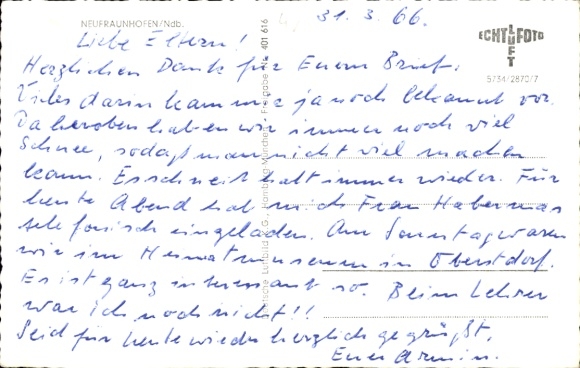 NEUFRAUNHOFEN/Ndb.
31.3.66.
ECHT LUFT FOTO
5734/2870/7
Liebe Eltern!
Herzlichen Dank für Euern Brief.
Vieles darin kam mir ja noch bekannt vor.
Da heroben haben wir immer noch viel
Schnee, sodaß man nicht viel machen
kann. Es schneit halt immer wieder. Für
heute Abend hat mich Frau Habermas
telefonisch eingeladen. Am Sonntag waren
wir im Heimatmuseum in Oberstdorf.
Es ist ganz interessant so. Beim Lehrer
war ich noch nicht!!
Seid für heute wieder herzlich gegrüßt,
Euer Armin.
Freigabe Nr. 401 616